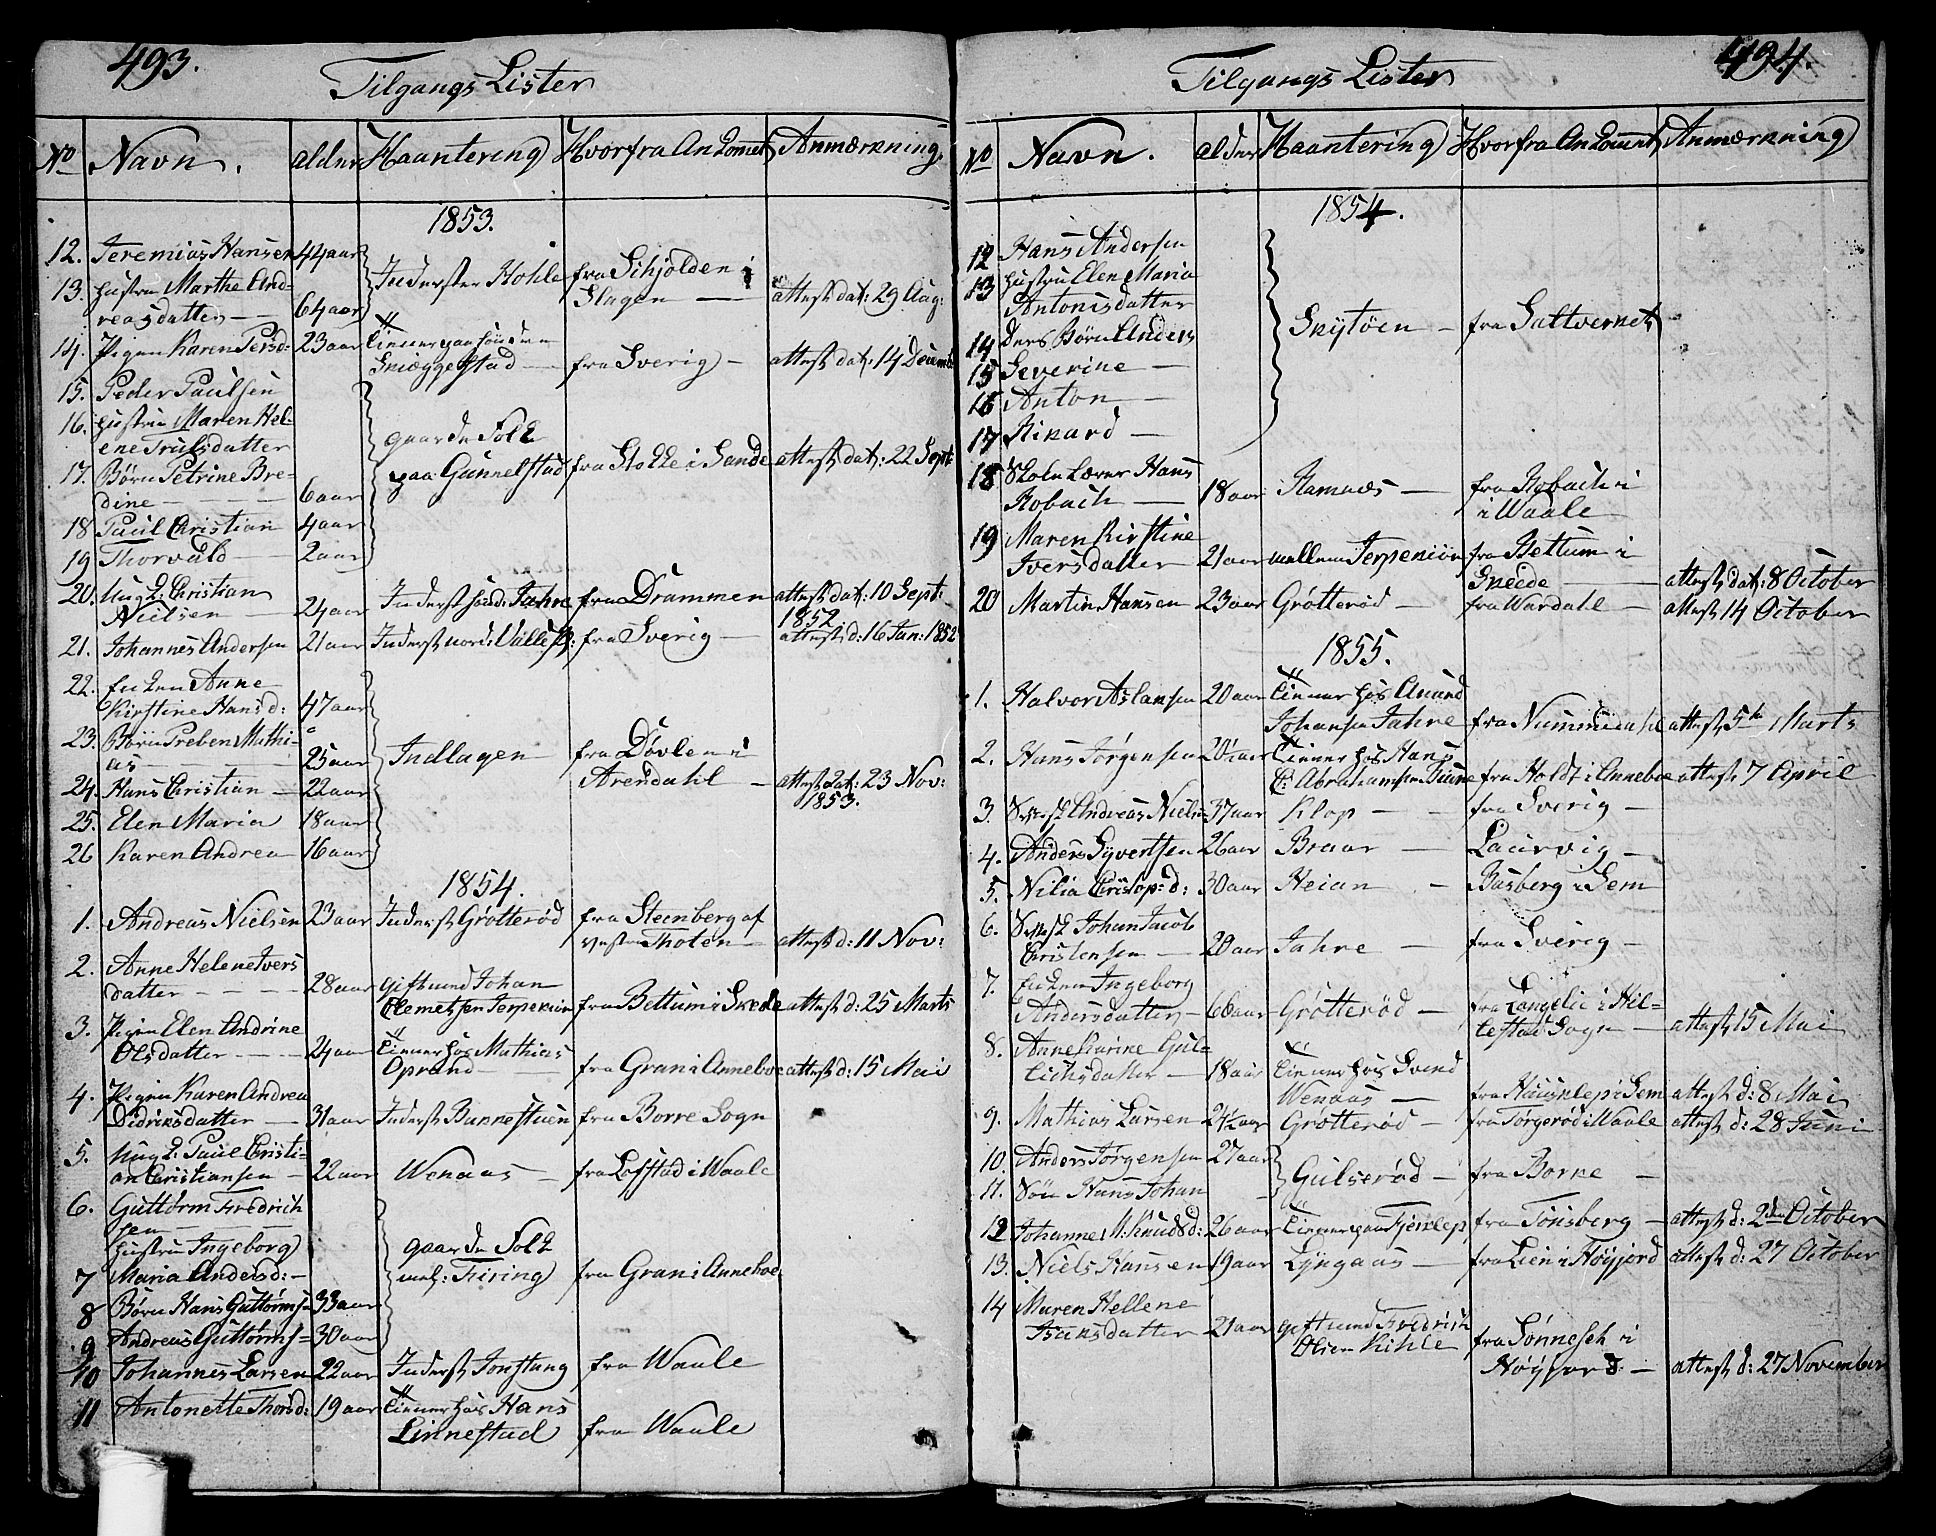 493.
Tilgangs Lister
No Navn. alder Haantering Hvorfra Ankomet Anmærkning
1853.
12. Jeremias Hansen 44 aar
13. hustru Marthe And-
reasdatter — 64 aar Inderster Hohle fra Sihjolden i
Slagen — attest dat: 29 Aug:
14. Pigen Karen Persd- 23 aar tienner paa søndre
Sniæggestad — fra Sverig — attest dat: 14 Decemb
15. Peder Paulsen
16. hustru Maren Hel-
ene Trulsdatter
17. Børn Petrine Bre-
dine — 6 aar gaarde Folk
paa Gunnelstad fra Stokke i Sande attest dat: 22 Sept:
18 Paul Christian 4 aar
19 Thorvald — 2 aar
20. Ung k: Christian
Nielsen — 24 aar Inderst søndr: Jahre fra Drammen attest dat: 10 Sept:
1852
21. Johannes Andersen 21 aar Inderst nordr Valle fra Sverig — attest d: 16 Jan: 1852
22. Enken Anne
Kirstine Hans d: 47 aar
23. Børn Preben Mathi-
as — 25 aar Indlagen fra Døvlen i
Arendahl — attest dat: 23 Nov:
1853.
24. Hans Christian — 22 aar
25. Elen Maria 18 aar
26 Karen Andrea — 16 aar
1854.
1. Andreas Nielsen 23 aar Inderst Grötterød fra Steenberg af
vestre Thoten — attest d: 11 Nov:
2. Anne Helene Ivers
datter — 28 aar gift med Johan
Clemetsen Terpenion fra Bettum i Skede attest d: 25 Marts
3. Pigen Elen Andrine
Olsdatter — 24 aar tienner hos Mathias
Oprand — fra Gran i Anneboe attest d: 15 Mai
4. Pigen Karen Andrea
Didriksdatter — 31 aar Inderst Bunnestuen fra Borre Sogn
5. Ung k: Paul Cristi-
an Christiansen — 22 aar Wenaas — fra Lofstad i Waale
6. Guttorm Fredrich
sen —
hustru Ingeborg
7 Maria Andersd: — gaarde Folk
mel: Firing fra Gran i Anneboe
8 Børn Hans Guttormse 33 aar
9 Andreas Guttorms= 30 aar
10 Johannes Larsen 22 aar Inderst Jonstang fra Waale
11 Antonette Thorsd: 19 aar tienner hos Hans
Linnestad fra Waale
494.
Tilgangs Lister
No Navn. alder Haantering Hvorfra Ankomet Anmærkning
1854.
12 Hans Andersen
13 hustru Elen Maria
Antonisdatter
14 Ders Børn Anders Skytöen — fra Saltvernet
15 Severine —
16 Anton —
17 Rikard —
18 Skole Lærer Hans
Robach — 18 aar Ramnæs — fra Robach i
i Waale
19 Maren Kirstine
Iversdatter 21 aar mellem Terpenion fra Bettum i
Sneede — attest dat: 8 October
20 Martin Hansen 23 aar Grötterød — fra Wardahl — attest 14 October
1855.
1. Halvor Aslansen 20 aar tienner hos Amund
Johansen Jahre fra Nummedahl attest 5te Marts
2. Hans Jörgensen 20½ aar tienner hos Hans
C: Abrahamsen fra Holdt i Anneboe attest 7 April
3. Andreas Niels- 37 aar Klop — fra Sverig —
4. Anders Syvertsen 26 aar Braar — Laurvig —
5. Nilia Cristop: d: 30 aar Heian — Basberg i Sem
6. Johan Jacob
Christensen — 20 aar Jahre — fra Sverig —
7. Enken Ingeborg
Andersdatter — 66 aar Grötterød — fra Langelie i Hil-
lestad Sogn — attest 15 Mai
8. Anne Karine Gul-
lichsdatter — 18 aar tienner hos Svend
Wenaas — fra Hausklep i Sem attest d: 8 Mai
9. Mathias Larsen 24½ aar Grötterød — fra Torgerød i Waale attest d: 28 Juni
10. Anders Jörgensen 27 aar
11. Søn Hans Johan Gulserød — fra Borne —
12 Johanne M. Knudsd: 26 aar tienner paa Fjerklep fra Tönsberg — attest d: 2den October
13. Niels Hansen 19 aar Lyngaas — fra Lien i Høyjord attest d: 27 October
14 Maren Hellene
Isaksdatter 21 aar gift med Fredrich
Olsen Kihle fra Sønneseh i
Høyjord — attest d: 27 November